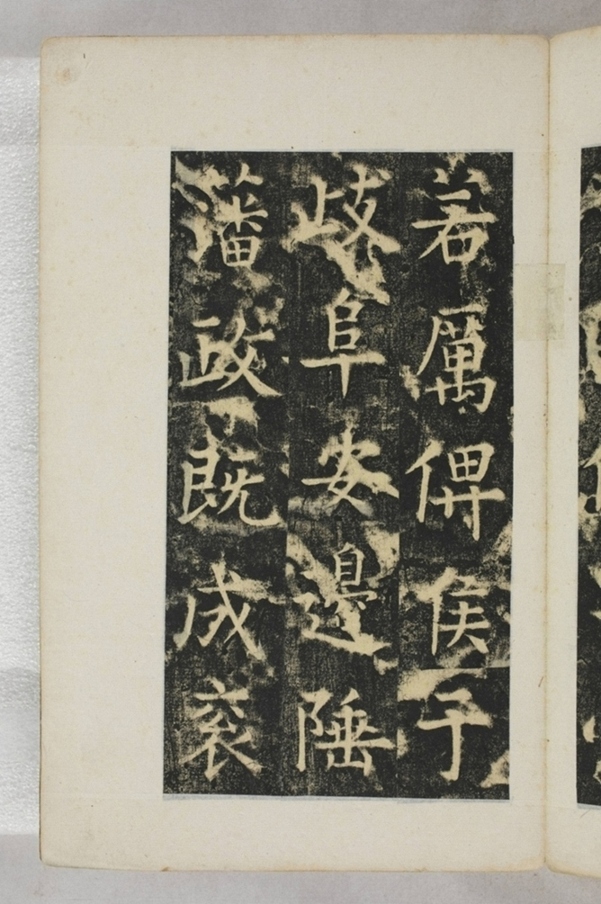 若厲俾侯于
歧阜安邊陲
藩政既成衮